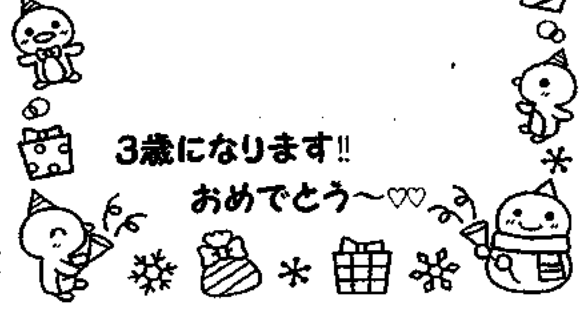 3歳になります!!
おめでとう〜♡♡